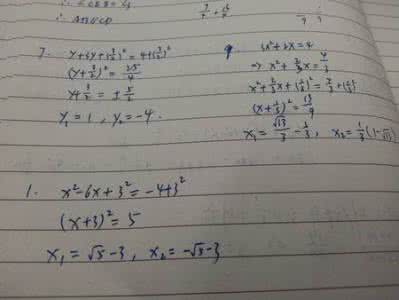 7. y²+3y+(3/2)²=4+(3/2)²
(y+3/2)²=25/4
y+3/2=±5/2
y₁=1, y₂=-4.
9 3x²+2x=4
⇒ x²+2/3x=4/3
x²+2/3x+(1/3)²=4/3+(1/3)²
(x+1/3)²=13/9
x₁=√13/3-1/3, x₂=1/3(1-√13)
1. x²-6x+3²=-4+3²
(x+3)²=5
x₁=√5-3, x₂=-√5-3